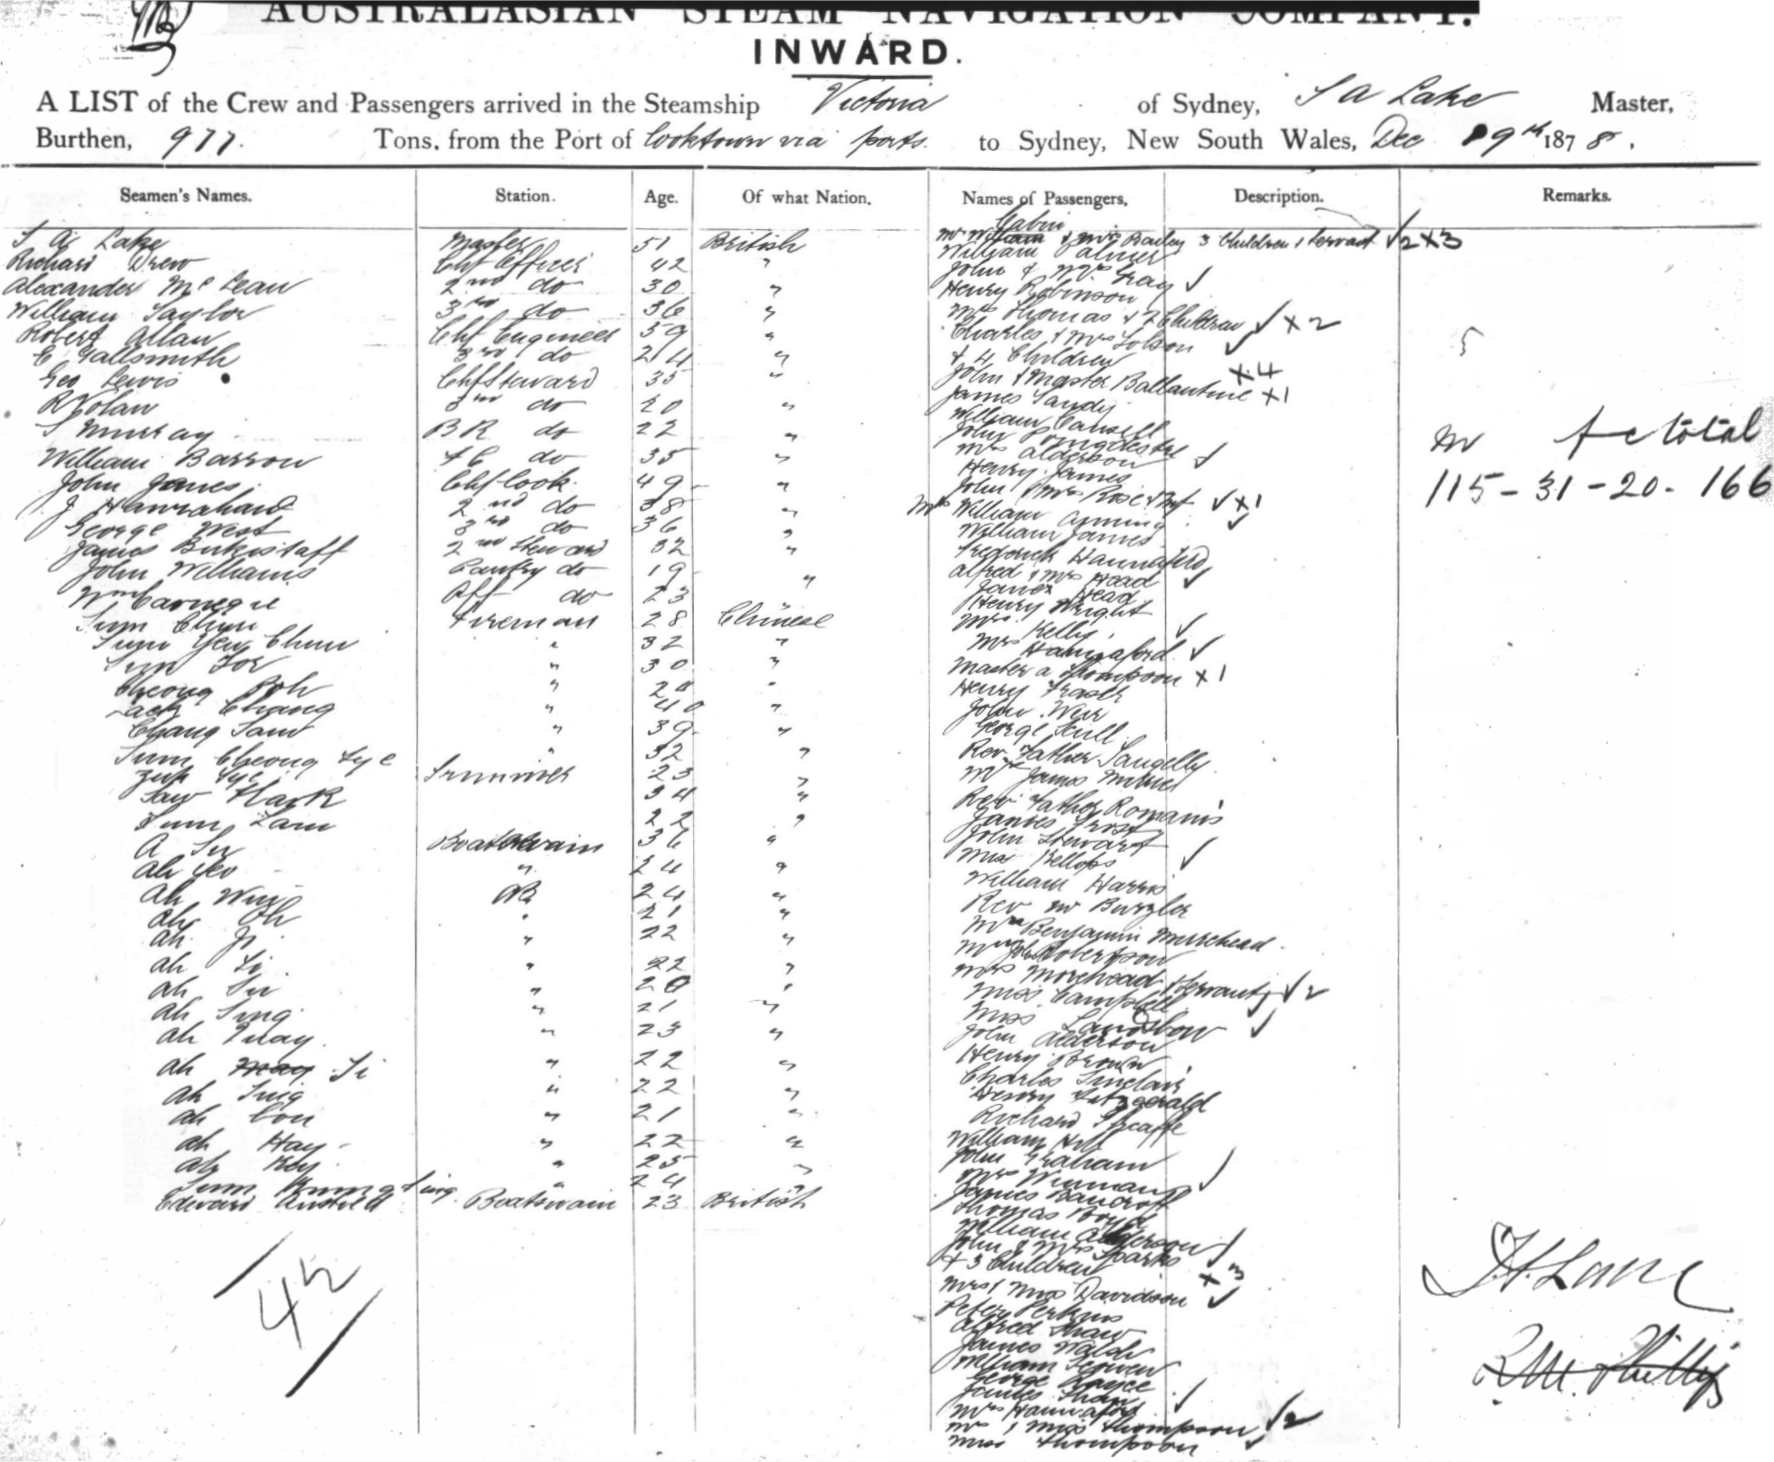 AUSTRALASIAN STEAM NAVIGATION COMPANY.
INWARD.
A LIST of the Crew and Passengers arrived in the Steamship Victoria of Sydney, S A Lake Master,
Burthen, 977. Tons, from the Port of Cooktown via ports. to Sydney, New South Wales, Dec 9th 1878.
Seamen's Names. Station. Age. Of what Nation. Names of Passengers. Description. Remarks.
Cabin
S A Lake Master 51 British
Richard Drew Chf Officer 42 "
Alexander McLean 2nd do 30 "
William Taylor 3rd do 36 "
Robert Allan Chf Engineer 39 "
C Gallsmith 3rd do 24 "
Geo Lewis Chf Steward 35 "
R Nolan 2nd do 20 "
S Murray B R do 22 "
William Barrow F C do 35 "
John James Chf Cook 49 "
J Hanrahard 2nd do 38 "
George West 3rd do 36 "
James Bickerstaff 2nd Steward 32 "
John Williams Pantry do 19 "
Wm Carnegie Aft do 23 "
Sum Chun Fireman 28 Chinese
Sum Yew Chun " 32 "
Sum For " 30 "
Cheong Poh "
Lack Chang " 40 "
Chang Sam " 39 "
Sum Cheong Lye " 32 "
Lye Trimmer 23 "
Saw Hack 34 "
Sum Lam 22 "
A Su Boatswain 36 "
Ah Yeo " 24 "
Ah Wing AB 24 "
Ah Oh " 21 "
Ah Ji " 22 "
Ah Li " 22 "
Ah Su " 20 "
Ah Sing " 21 "
Ah Quay " 23 "
Ah Si " 22 "
Ah Sing " 22 "
Ah Con " 21 "
Ah Hay " 22 "
Ah Key " 25 "
Sum " 24 "
Edward Boatswain 23 British
42
Mr William & Mrs Bailey 3 Children 1 Servant √2 x 3
William Palmer
John & Mrs Gray √
Henry Robinson
Mrs Thomas & 2 Children √ x 2
Charles & Mrs Tolson √
& 4 Children x 4
John & Master Ballantine x 1
James Sandy
William Cansell
John
Mrs Alderson √
Henry James
John & Mrs Rose & Inft √ x 1
Mrs William Cumming √
William James
Frederick Hannaford
Alfred & Mrs Head √
James Head
Henry Wright
Mrs Kelly √
Mrs Hannaford √
Master A Thompson x 1
Henry Fraser
John Weir
George Scull
Rev Father
Mr James
Rev Father Romanis
James Frost
John Stewart
Miss Bellops √
William Harris
Rev Mr Buzzler
Mr Benjamin Morehead
Robertson
Mrs Morehead & Servant √2
Miss Campbell
Miss Landsbow √
John Alderson
Henry Brown
Charles Sinclair
Henry Fitzgerald
Richard Sheaffe
William Hill
John Graham
Mrs Winman √
James Bancroft
Thomas Boyd
William Alderson
John & Mrs Sparks √
& 3 Children x 3
Mrs & Miss Davidson √
Peter Perkins
Alfred Shaw
James Walsh
William
George
James Shaw
Mrs Hannaford √
Mrs & Miss Thompson √2
Miss Thompson √
5
m f c total
115 - 31 - 20 - 166